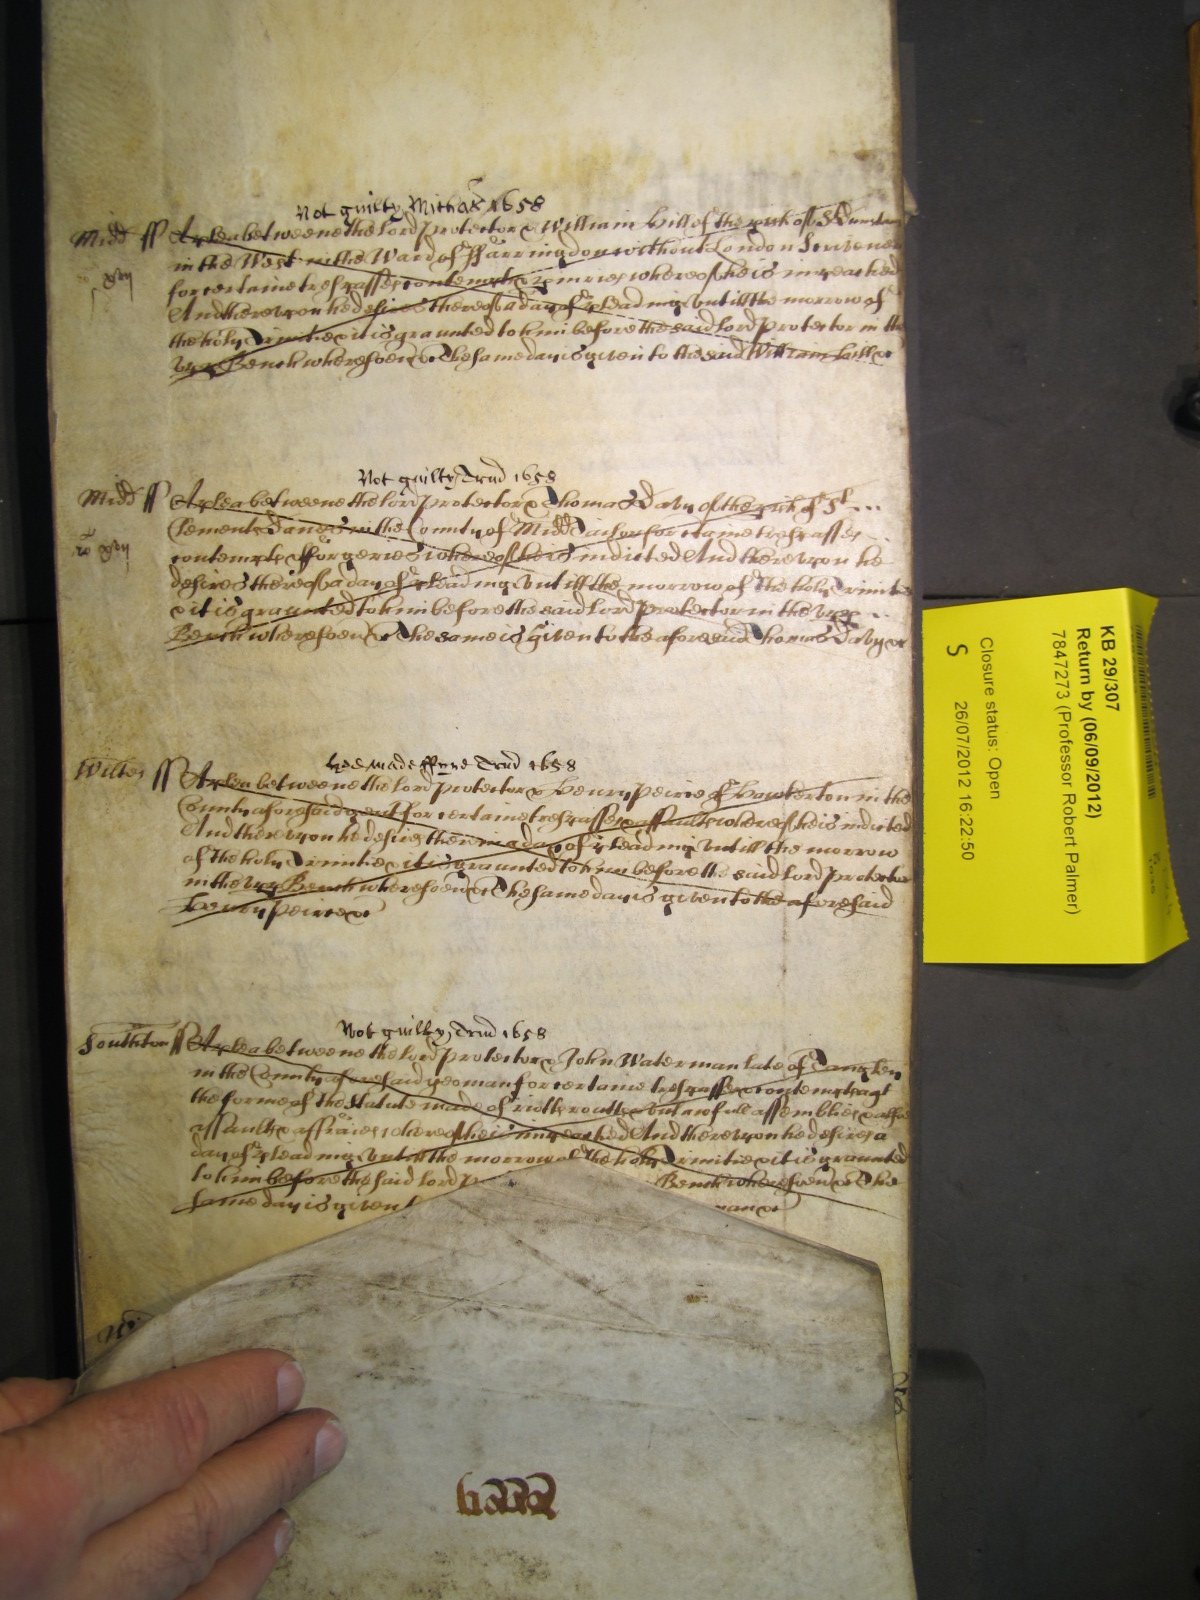 Not guilty Michas 1658
Midd ss A plea betweene the Lord Protector & William Hill of the pish of St Dunstans
in the West in the Ward of Farringdon without London Scrivener
for certaine trespasses contempts & iniuries whereof he is impeached
And thereupon he desires thereof a day of pleading untill the morrow of
the holy Trinitie & it is graunted to him before the said Lord Protector in the
upp Bench wheresoevr &c The same day is given to the said William Hill &c
Not guilty Trin 1658
Midd ss A plea betweene the Lord Protector & Thomas Davy of the pish of St
Clement Danes in the County of Midd for certaine trespasses
contempts & forgeries whereof he is indicted And thereupon he
desires thereof a day of pleading untill the morrow of the holy Trinitie
& it is graunted to him before the said Lord Protector in the upp
Bench wheresoevr &c The same is given to the aforesaid Thomas Davy &c
hee made ffyne Trin 1658
Wiltes ss A plea betweene the Lord Protector & Henry Peirce of in the
County aforesaid gent for certaine trespasses & assaults whereof he is indicted
And thereupon he desires thereof a day of pleading untill the morrow
of the holy Trinitie & it is graunted to him before the said Lord Protector
in the upp Bench wheresoevr &c The same day is given to the aforesaid
Henry Peirce &c
Not guilty Trin 1658
Southton ss A plea betweene the Lord Protector & John Waterman late of
in the County aforesaid yeoman for certaine trespasses & contempts agt
the forme of the Statute made of riotts routts & unlawfull assemblies & alsoe
assaults & affraies whereof he is impeached And thereupon he desires a
day of pleading untill the morrow of the holy Trinitie & it is graunted
to him before the said Lord Bench wheresoevr &c The
same day is given man &c
KB 29/307
Return by (06/09/2012)
7847273 (Professor Robert Palmer)
Closure status: Open
S 26/07/2012 16:22:50